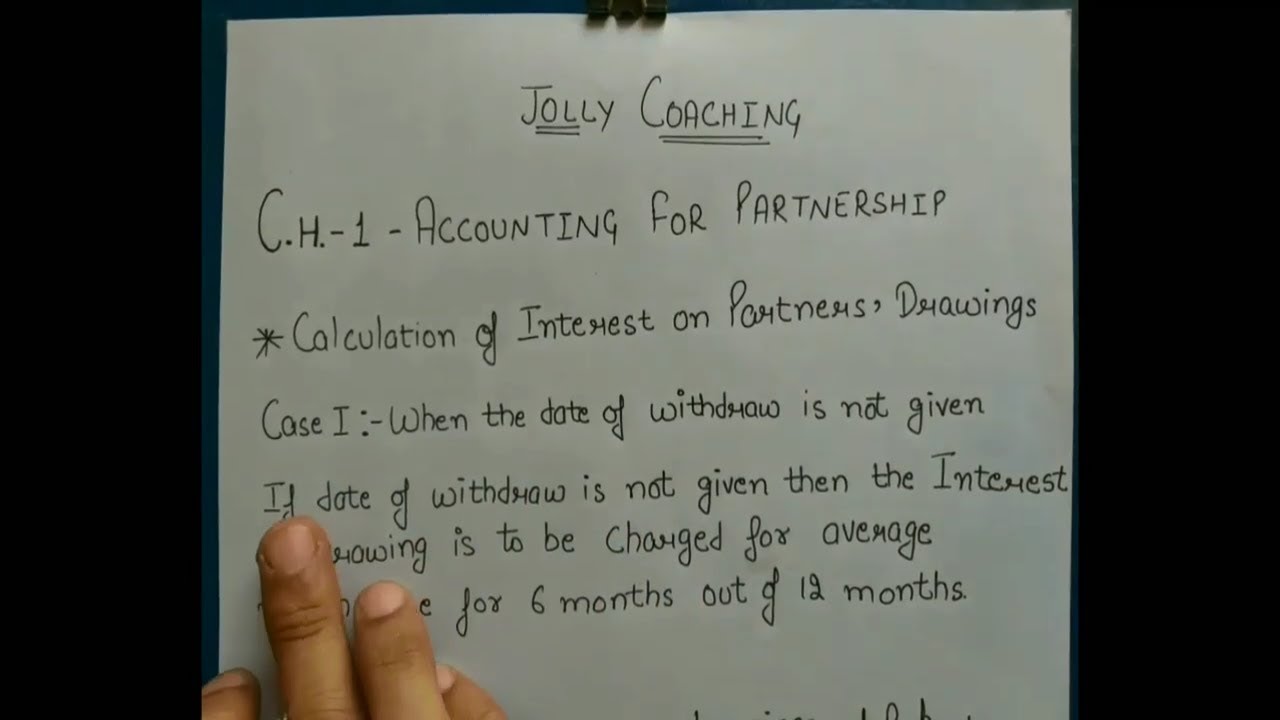 JOLLY COACHING
C.H.-1 - ACCOUNTING FOR PARTNERSHIP
* Calculation of Interest on Partners, Drawings
Case I :- When the date of withdraw is not given
If date of withdraw is not given then the Interest
is to be charged for average
for 6 months out of 12 months.